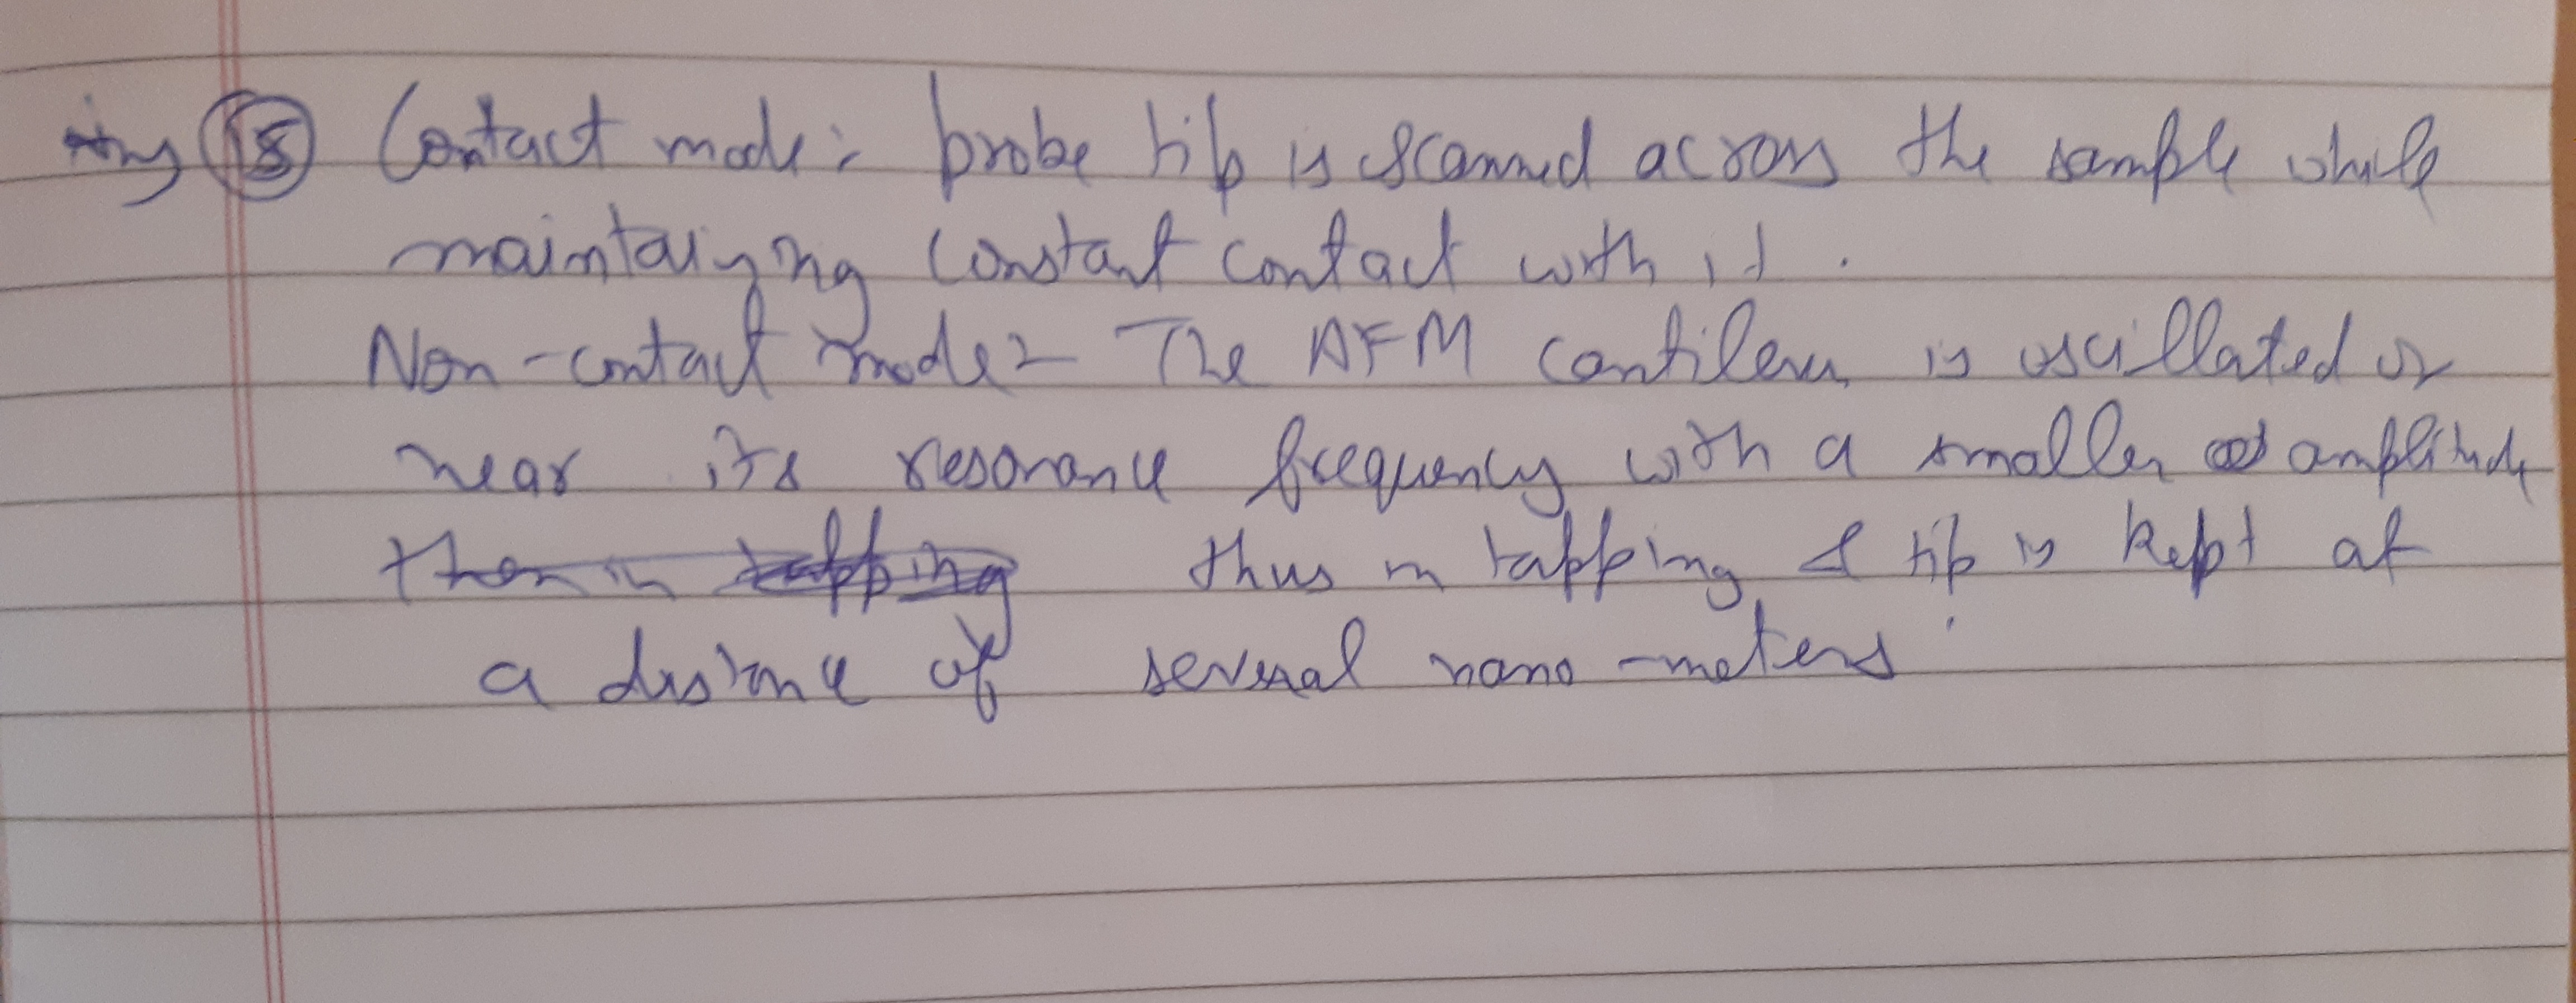 Ans (18) Contact mode: probe tip is scanned across the sample while
maintaiying constant contact with it.
Non-contact mode:- The AFM cantilever is oscillated or
near its resonance frequency with a smaller amplitude
then in tapping thus in tapping & tip is kept at
a distance of several nano-meters.